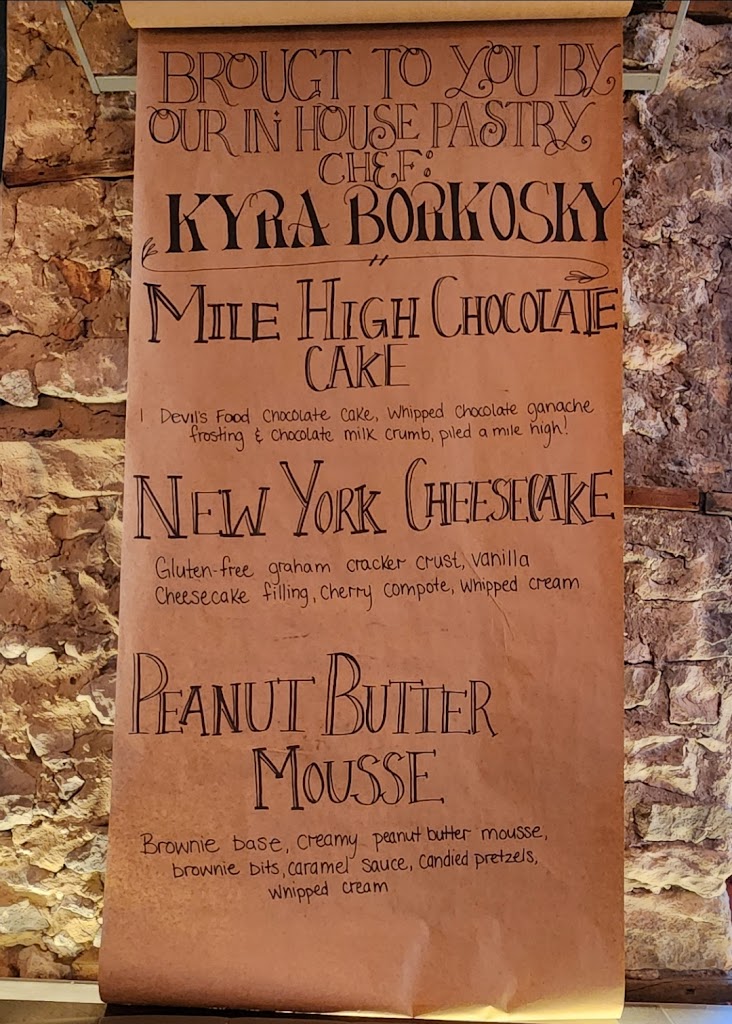 BROUGT TO YOU BY
OUR IN HOUSE PASTRY
CHEF:
KYRA BORKOSKY
MILE HIGH CHOCOLATE
CAKE
Devil's Food Chocolate Cake, Whipped Chocolate ganache
frosting & chocolate milk crumb, piled a mile high!
NEW YORK CHEESECAKE
Gluten-free graham cracker crust, vanilla
Cheesecake filling, cherry compote, whipped cream
PEANUT BUTTER
MOUSSE
Brownie base, creamy peanut butter mousse,
brownie bits, caramel sauce, candied pretzels,
whipped cream